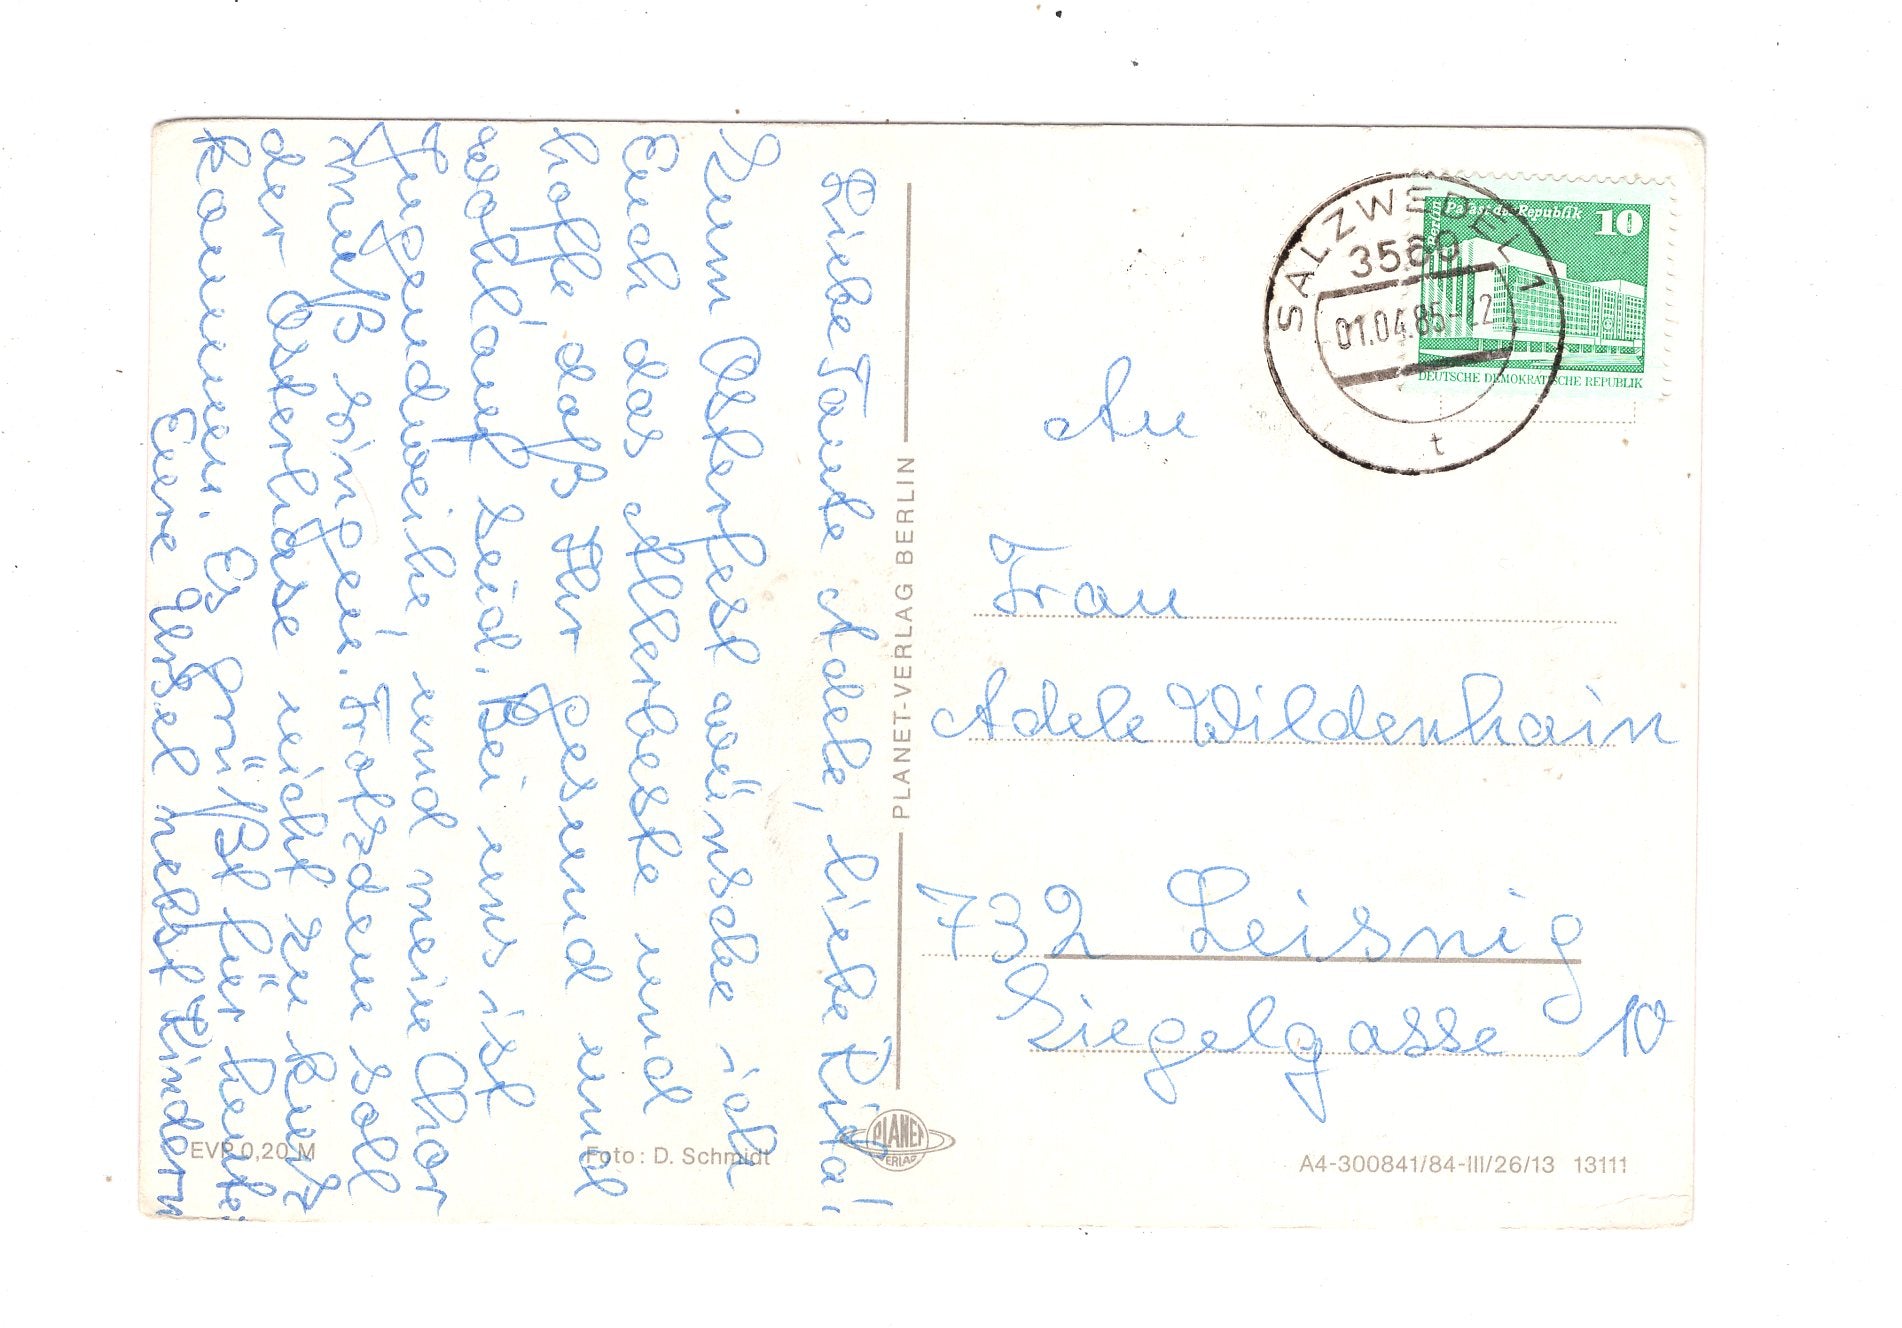 Liebe Tante Adele, liebe Rita!
Zum Osterfest wünsche ich
Euch das Allerbeste und
hoffe, daß Ihr gesund und
wohlauf seid. Bei uns ist
Jugendweihe, und mein Chor
muß singen. Trotzdem soll
der Osterhase nicht zu kurz
kommen. Es grüßt für heute:
Eure Ursel nebst Kindern
EVP 0,20 M
Foto: D. Schmidt
PLANET-VERLAG BERLIN
PLANET
VERLAG
SALZWEDEL 1
3560
01.04.85
t
Berlin
Palast der Republik
10
DEUTSCHE DEMOKRATISCHE REPUBLIK
An
Frau
Adele Wildenhain
732 Leisnig
Ziegelgasse 10
A4-300841/84-III/26/13 13111